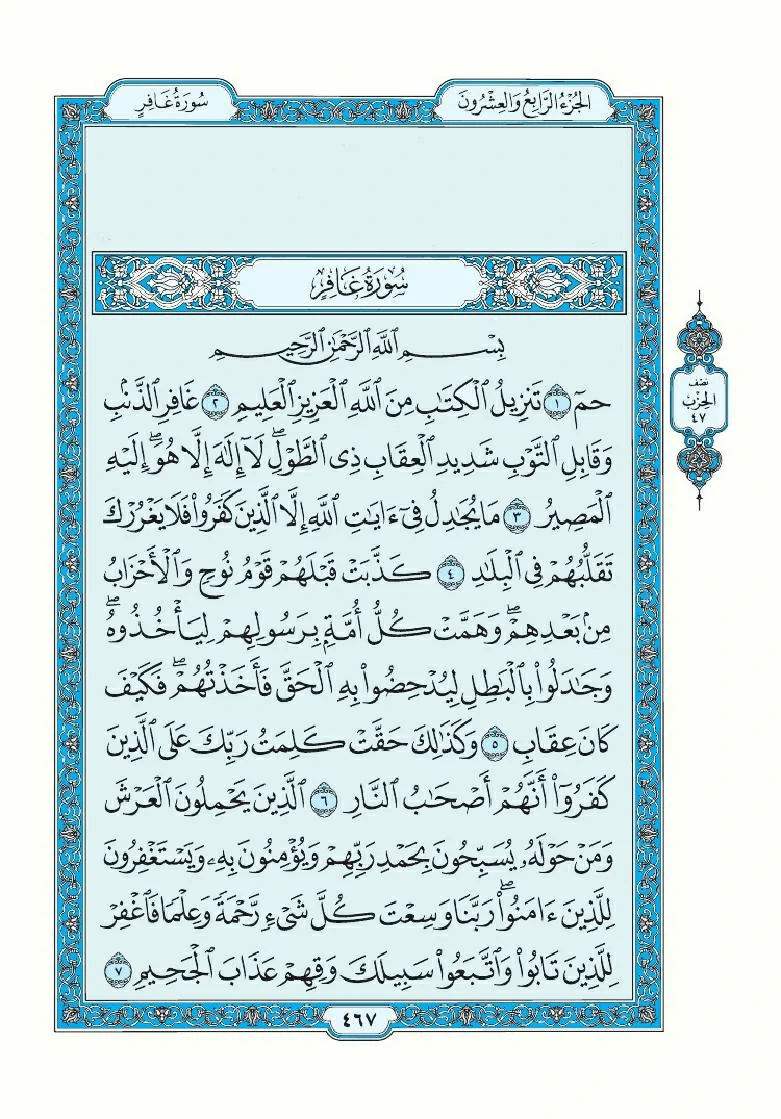 الجزء الرابع والعشرون
سورة غافر
سُورَةُ غَافِرٍ
بِسْمِ ٱللَّهِ ٱلرَّحْمَٰنِ ٱلرَّحِيمِ
حمٓ ١ تَنزِيلُ ٱلْكِتَٰبِ مِنَ ٱللَّهِ ٱلْعَزِيزِ ٱلْعَلِيمِ ٢ غَافِرِ ٱلذَّنۢبِ
وَقَابِلِ ٱلتَّوْبِ شَدِيدِ ٱلْعِقَابِ ذِى ٱلطَّوْلِۖ لَآ إِلَٰهَ إِلَّا هُوَۖ إِلَيْهِ
ٱلْمَصِيرُ ٣ مَا يُجَٰدِلُ فِىٓ ءَايَٰتِ ٱللَّهِ إِلَّا ٱلَّذِينَ كَفَرُوا۟ فَلَا يَغْرُرْكَ
تَقَلُّبُهُمْ فِى ٱلْبِلَٰدِ ٤ كَذَّبَتْ قَبْلَهُمْ قَوْمُ نُوحٍ وَٱلْأَحْزَابُ
مِنۢ بَعْدِهِمْۖ وَهَمَّتْ كُلُّ أُمَّةٍۭ بِرَسُولِهِمْ لِيَأْخُذُوهُۖ
وَجَٰدَلُوا۟ بِٱلْبَٰطِلِ لِيُدْحِضُوا۟ بِهِ ٱلْحَقَّ فَأَخَذْتُهُمْۖ فَكَيْفَ
كَانَ عِقَابِ ٥ وَكَذَٰلِكَ حَقَّتْ كَلِمَتُ رَبِّكَ عَلَى ٱلَّذِينَ
كَفَرُوٓا۟ أَنَّهُمْ أَصْحَٰبُ ٱلنَّارِ ٦ ٱلَّذِينَ يَحْمِلُونَ ٱلْعَرْشَ
وَمَنْ حَوْلَهُۥ يُسَبِّحُونَ بِحَمْدِ رَبِّهِمْ وَيُؤْمِنُونَ بِهِۦ وَيَسْتَغْفِرُونَ
لِلَّذِينَ ءَامَنُوا۟ۖ رَبَّنَا وَسِعْتَ كُلَّ شَىْءٍ رَّحْمَةً وَعِلْمًا فَٱغْفِرْ
لِلَّذِينَ تَابُوا۟ وَٱتَّبَعُوا۟ سَبِيلَكَ وَقِهِمْ عَذَابَ ٱلْجَحِيمِ ٧
نصف
الحزب
٤٧
٤٦٧